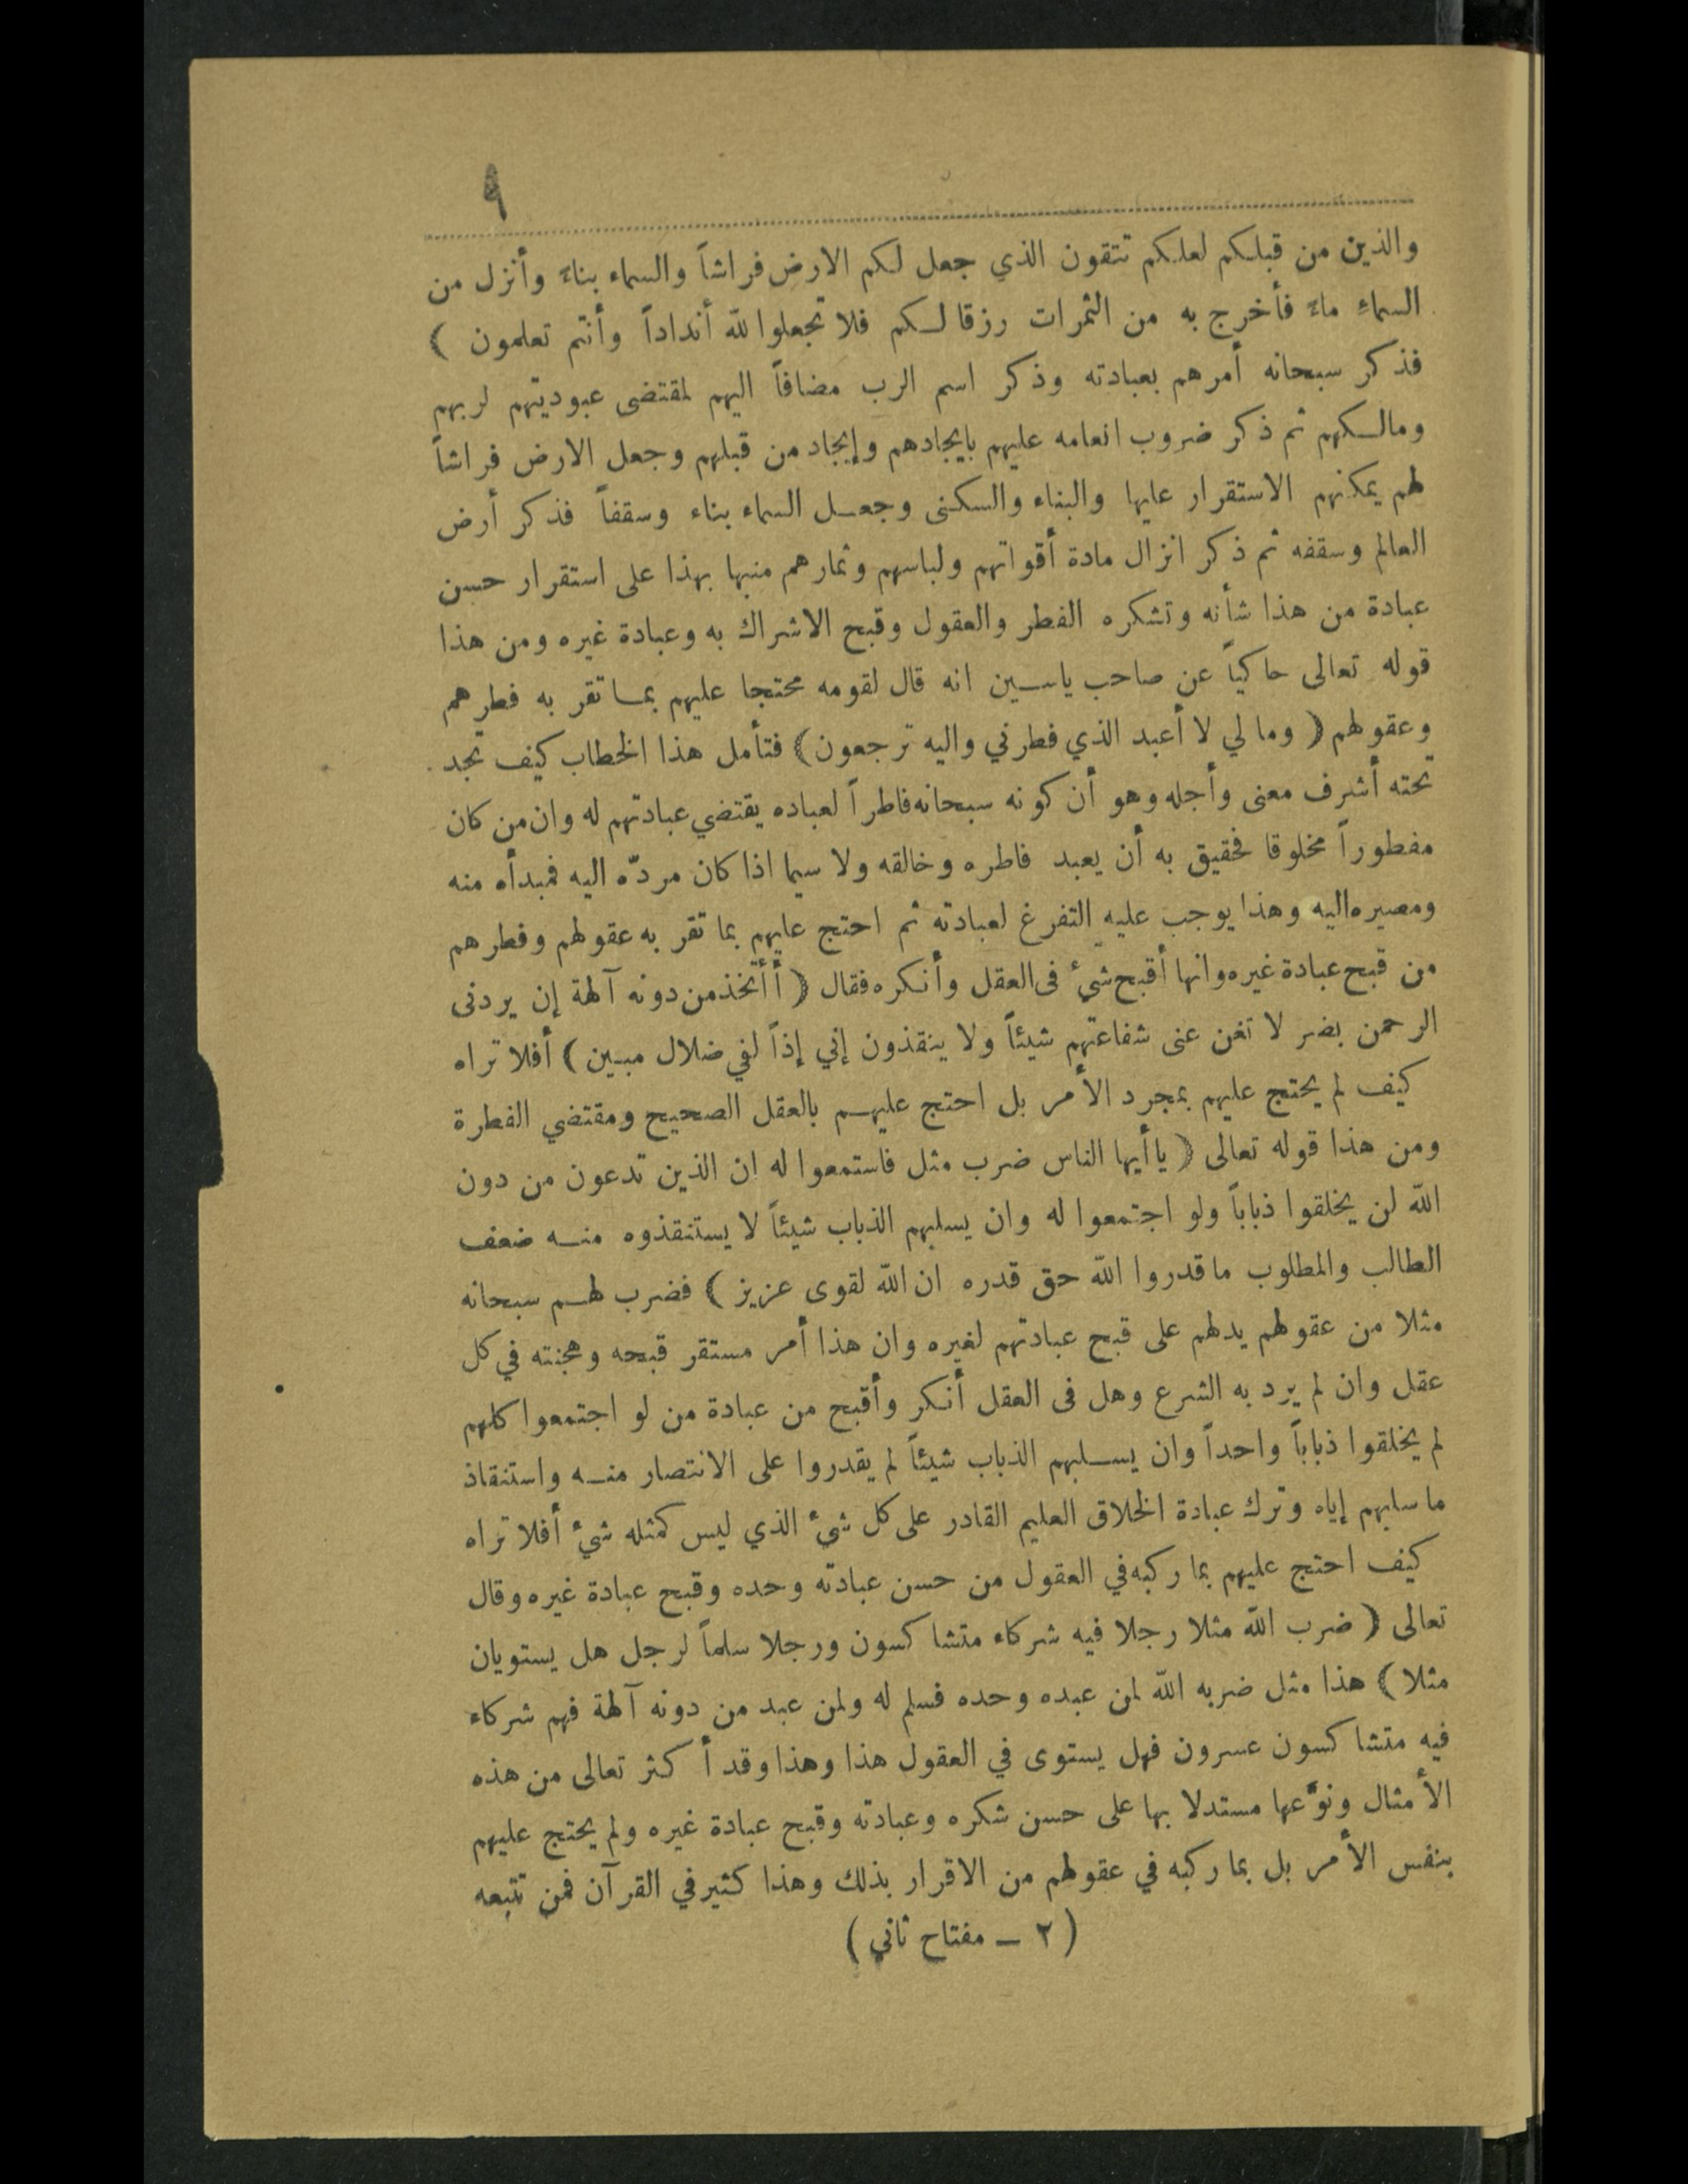 ٩
والذين من قبلكم لعلكم تتقون الذي جعل لكم الارض فراشاً والسماء بناءً وأنزل من
السماء ماءً فأخرج به من الثمرات رزقا لكم فلا تجعلوا لله أنداداً وأنتم تعلمون ﴾
فذكر سبحانه أمرهم بعبادته وذكر اسم الرب مضافاً اليهم لمقتضى عبوديتهم لربهم
ومالكهم ثم ذكر ضروب انعامه عليهم بايجادهم وإيجاد من قبلهم وجعل الارض فراشاً
لهم يمكنهم الاستقرار عليها والبناء والسكنى وجعل السماء بناء وسقفاً فذكر أرض
العالم وسقفه ثم ذكر انزال مادة أقواتهم ولباسهم وثمارهم منبها بهذا على استقرار حسن
عبادة من هذا شأنه وتشكره الفطر والعقول وقبح الاشراك به وعبادة غيره ومن هذا
قوله تعالى حاكياً عن صاحب ياسين انه قال لقومه محتجا عليهم بما تقر به فطرهم
وعقولهم ﴿ وما لي لا أعبد الذي فطرني واليه ترجعون ﴾ فتأمل هذا الخطاب كيف تجد
تحته أشرف معنى وأجله وهو أن كونه سبحانه فاطراً لعباده يقتضي عبادتهم له وان من كان
مفطوراً مخلوقا فحقيق به أن يعبد فاطره وخالقه ولا سيما اذا كان مردّه اليه فمبدأه منه
ومصيره اليه وهذا يوجب عليه التفرغ لعبادته ثم احتج عليهم بما تقر به عقولهم وفطرهم
من قبح عبادة غيره وانها أقبح شيء فى العقل وأنكره فقال ﴿ أأتخذ من دونه آلهة إن يردنى
الرحمن بضر لا تغن عنى شفاعتهم شيئاً ولا ينقذون إني إذاً لفي ضلال مبين ﴾ أفلا تراه
كيف لم يحتج عليهم بمجرد الأمر بل احتج عليهم بالعقل الصحيح ومقتضي الفطرة
ومن هذا قوله تعالى ﴿ ياأيها الناس ضرب مثل فاستمعوا له ان الذين تدعون من دون
الله لن يخلقوا ذباباً ولو اجتمعوا له وان يسلبهم الذباب شيئاً لا يستنقذوه منه ضعف
الطالب والمطلوب ما قدروا الله حق قدره ان الله لقوى عزيز ﴾ فضرب لهم سبحانه
مثلا من عقولهم يدلهم على قبح عبادتهم لغيره وان هذا أمر مستقر قبحه وهجنته في كل
عقل وان لم يرد به الشرع وهل فى العقل أنكر وأقبح من عبادة من لو اجتمعوا كلهم
لم يخلقوا ذباباً واحداً وان يسلبهم الذباب شيئاً لم يقدروا على الانتصار منه واستنقاذ
ما سلبهم إياه وترك عبادة الخلاق العليم القادر على كل شيء الذي ليس كمثله شيء أفلا تراه
كيف احتج عليهم بما ركبه في العقول من حسن عبادته وحده وقبح عبادة غيره وقال
تعالى ﴿ ضرب الله مثلا رجلا فيه شركاء متشاكسون ورجلا سلماً لرجل هل يستويان
مثلا ﴾ هذا مثل ضربه الله لمن عبده وحده فسلم له ولمن عبد من دونه آلهة فهم شركاء
فيه متشاكسون عسرون فهل يستوى في العقول هذا وهذا وقد أكثر تعالى من هذه
الأمثال ونوّعها مستدلا بها على حسن شكره وعبادته وقبح عبادة غيره ولم يحتج عليهم
بنفس الأمر بل بما ركبه في عقولهم من الاقرار بذلك وهذا كثير في القرآن فمن تتبعه
( ٢ — مفتاح ثاني )